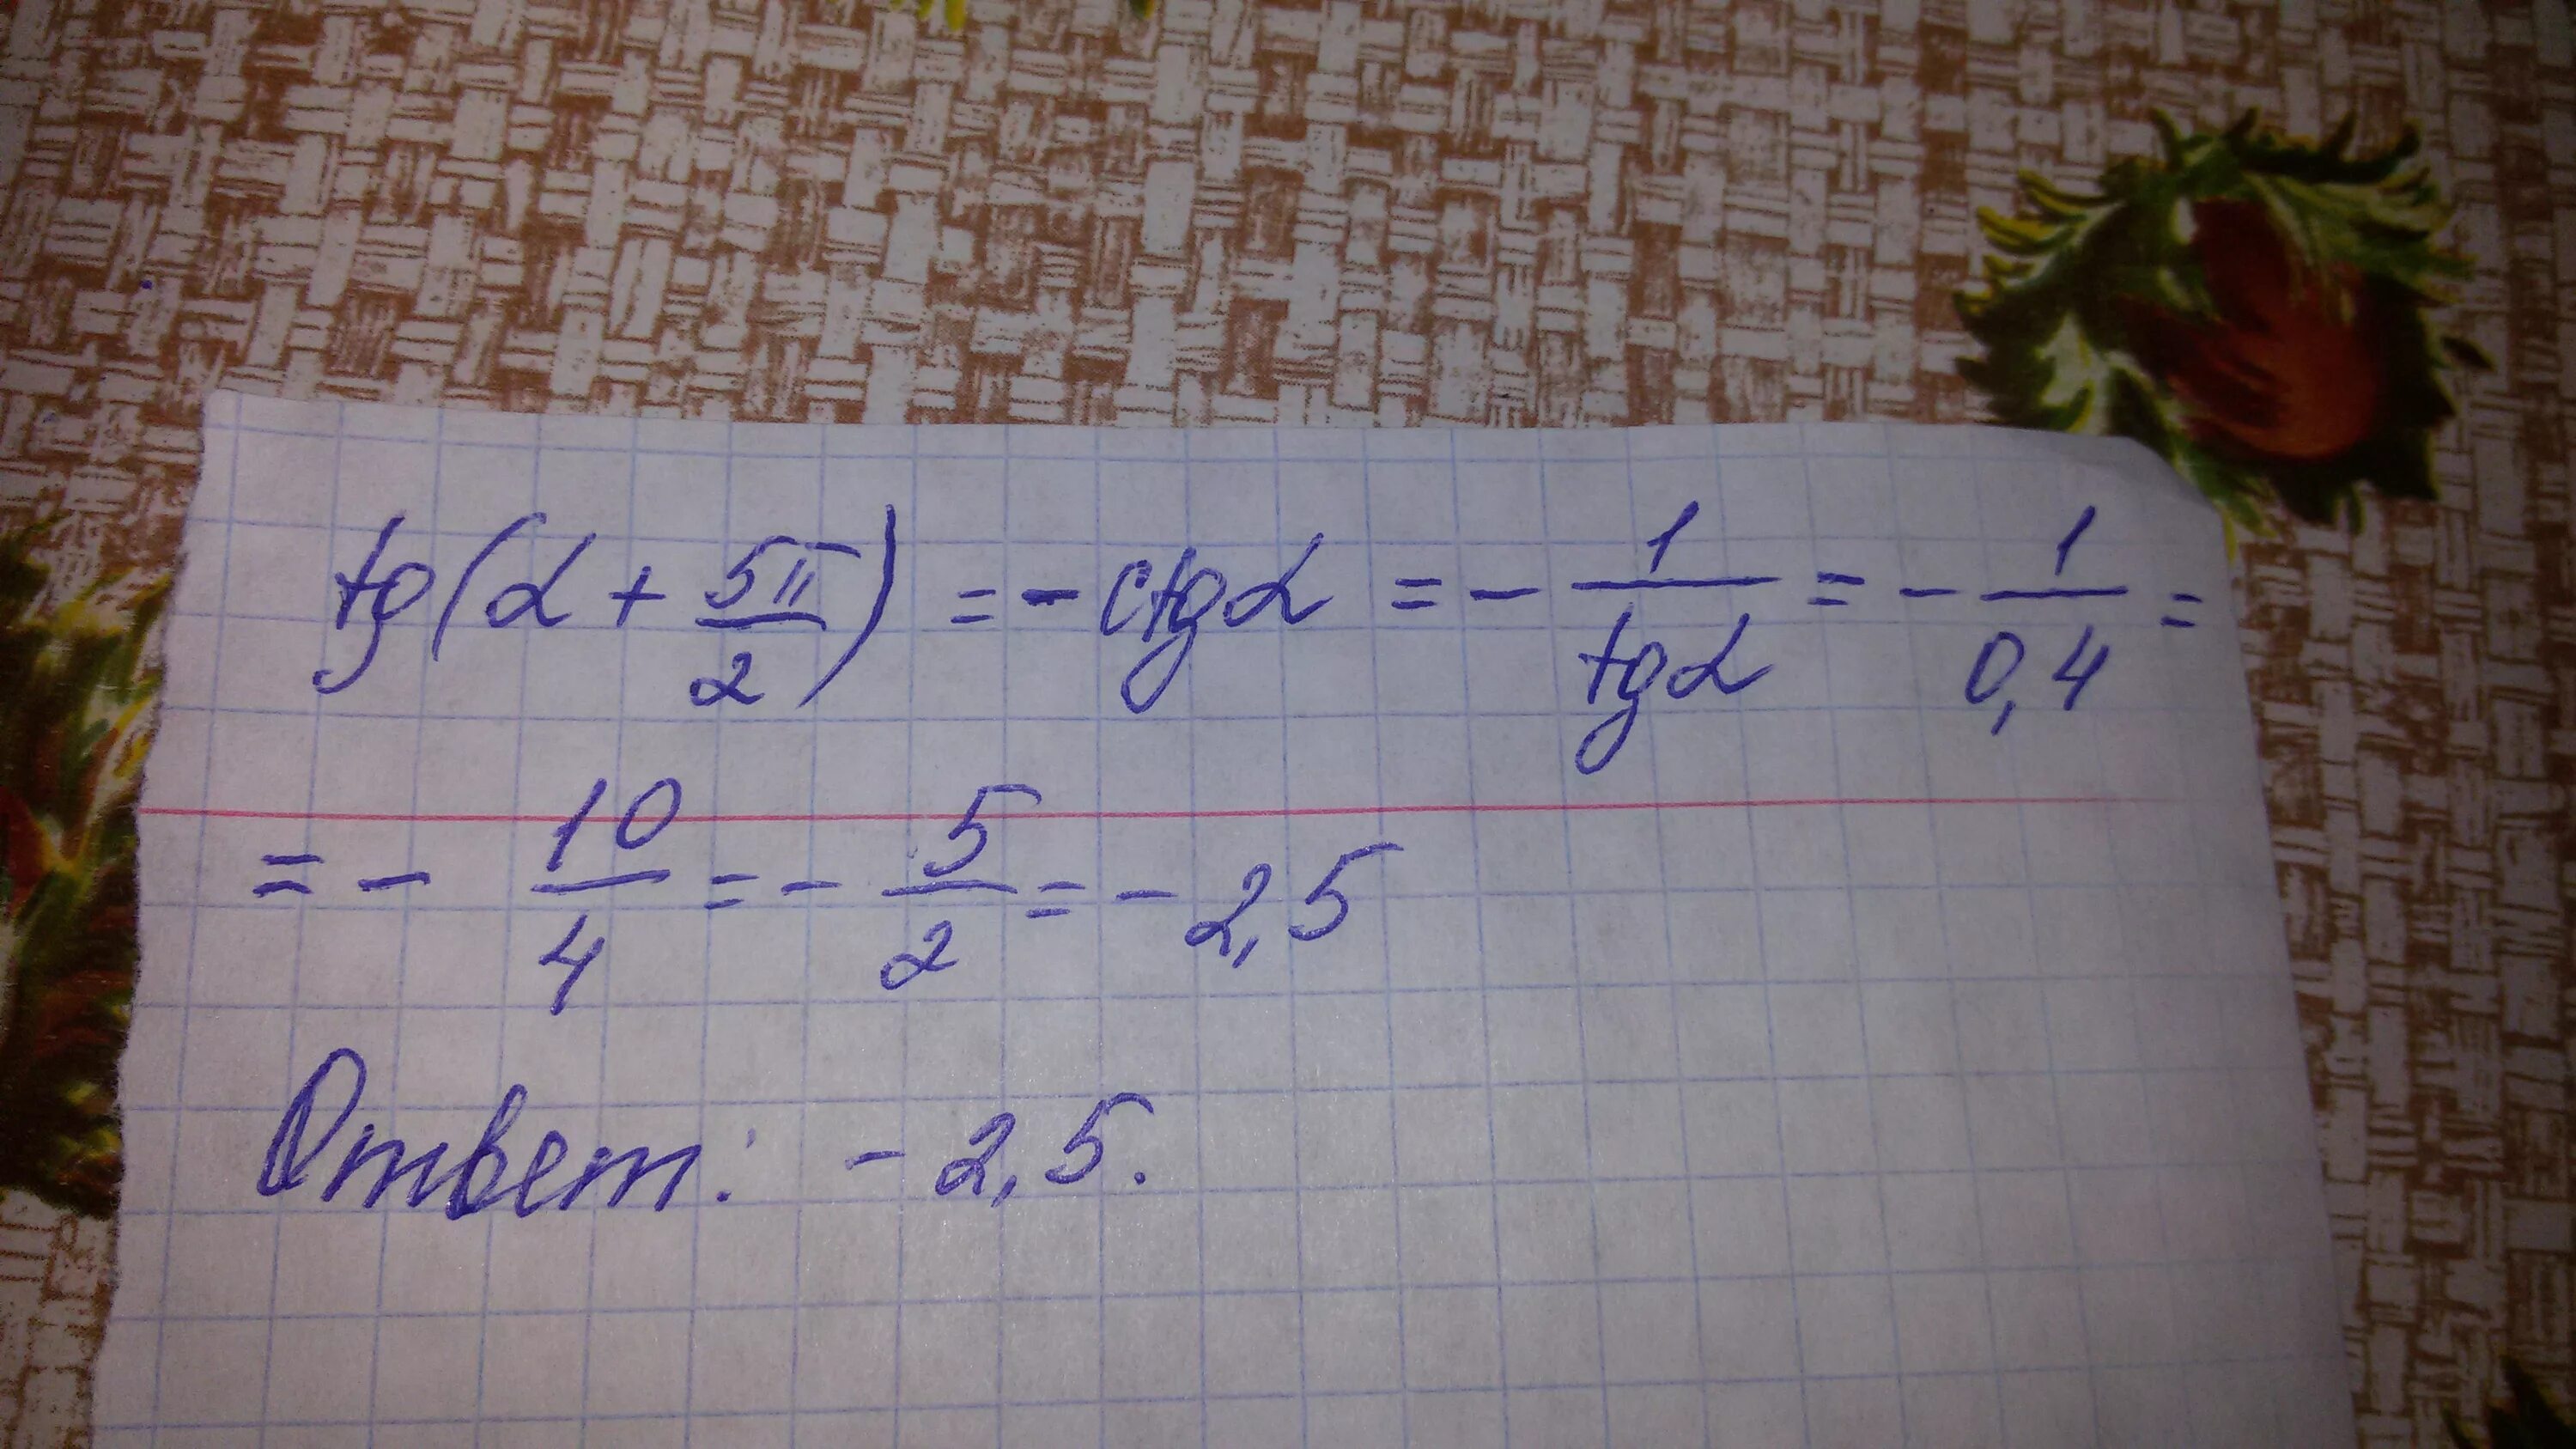 tg(α + 5π/2) = -ctgα = - 1/tgα = - 1/0,4 =
= - 10/4 = - 5/2 = - 2,5
Ответ: - 2,5.